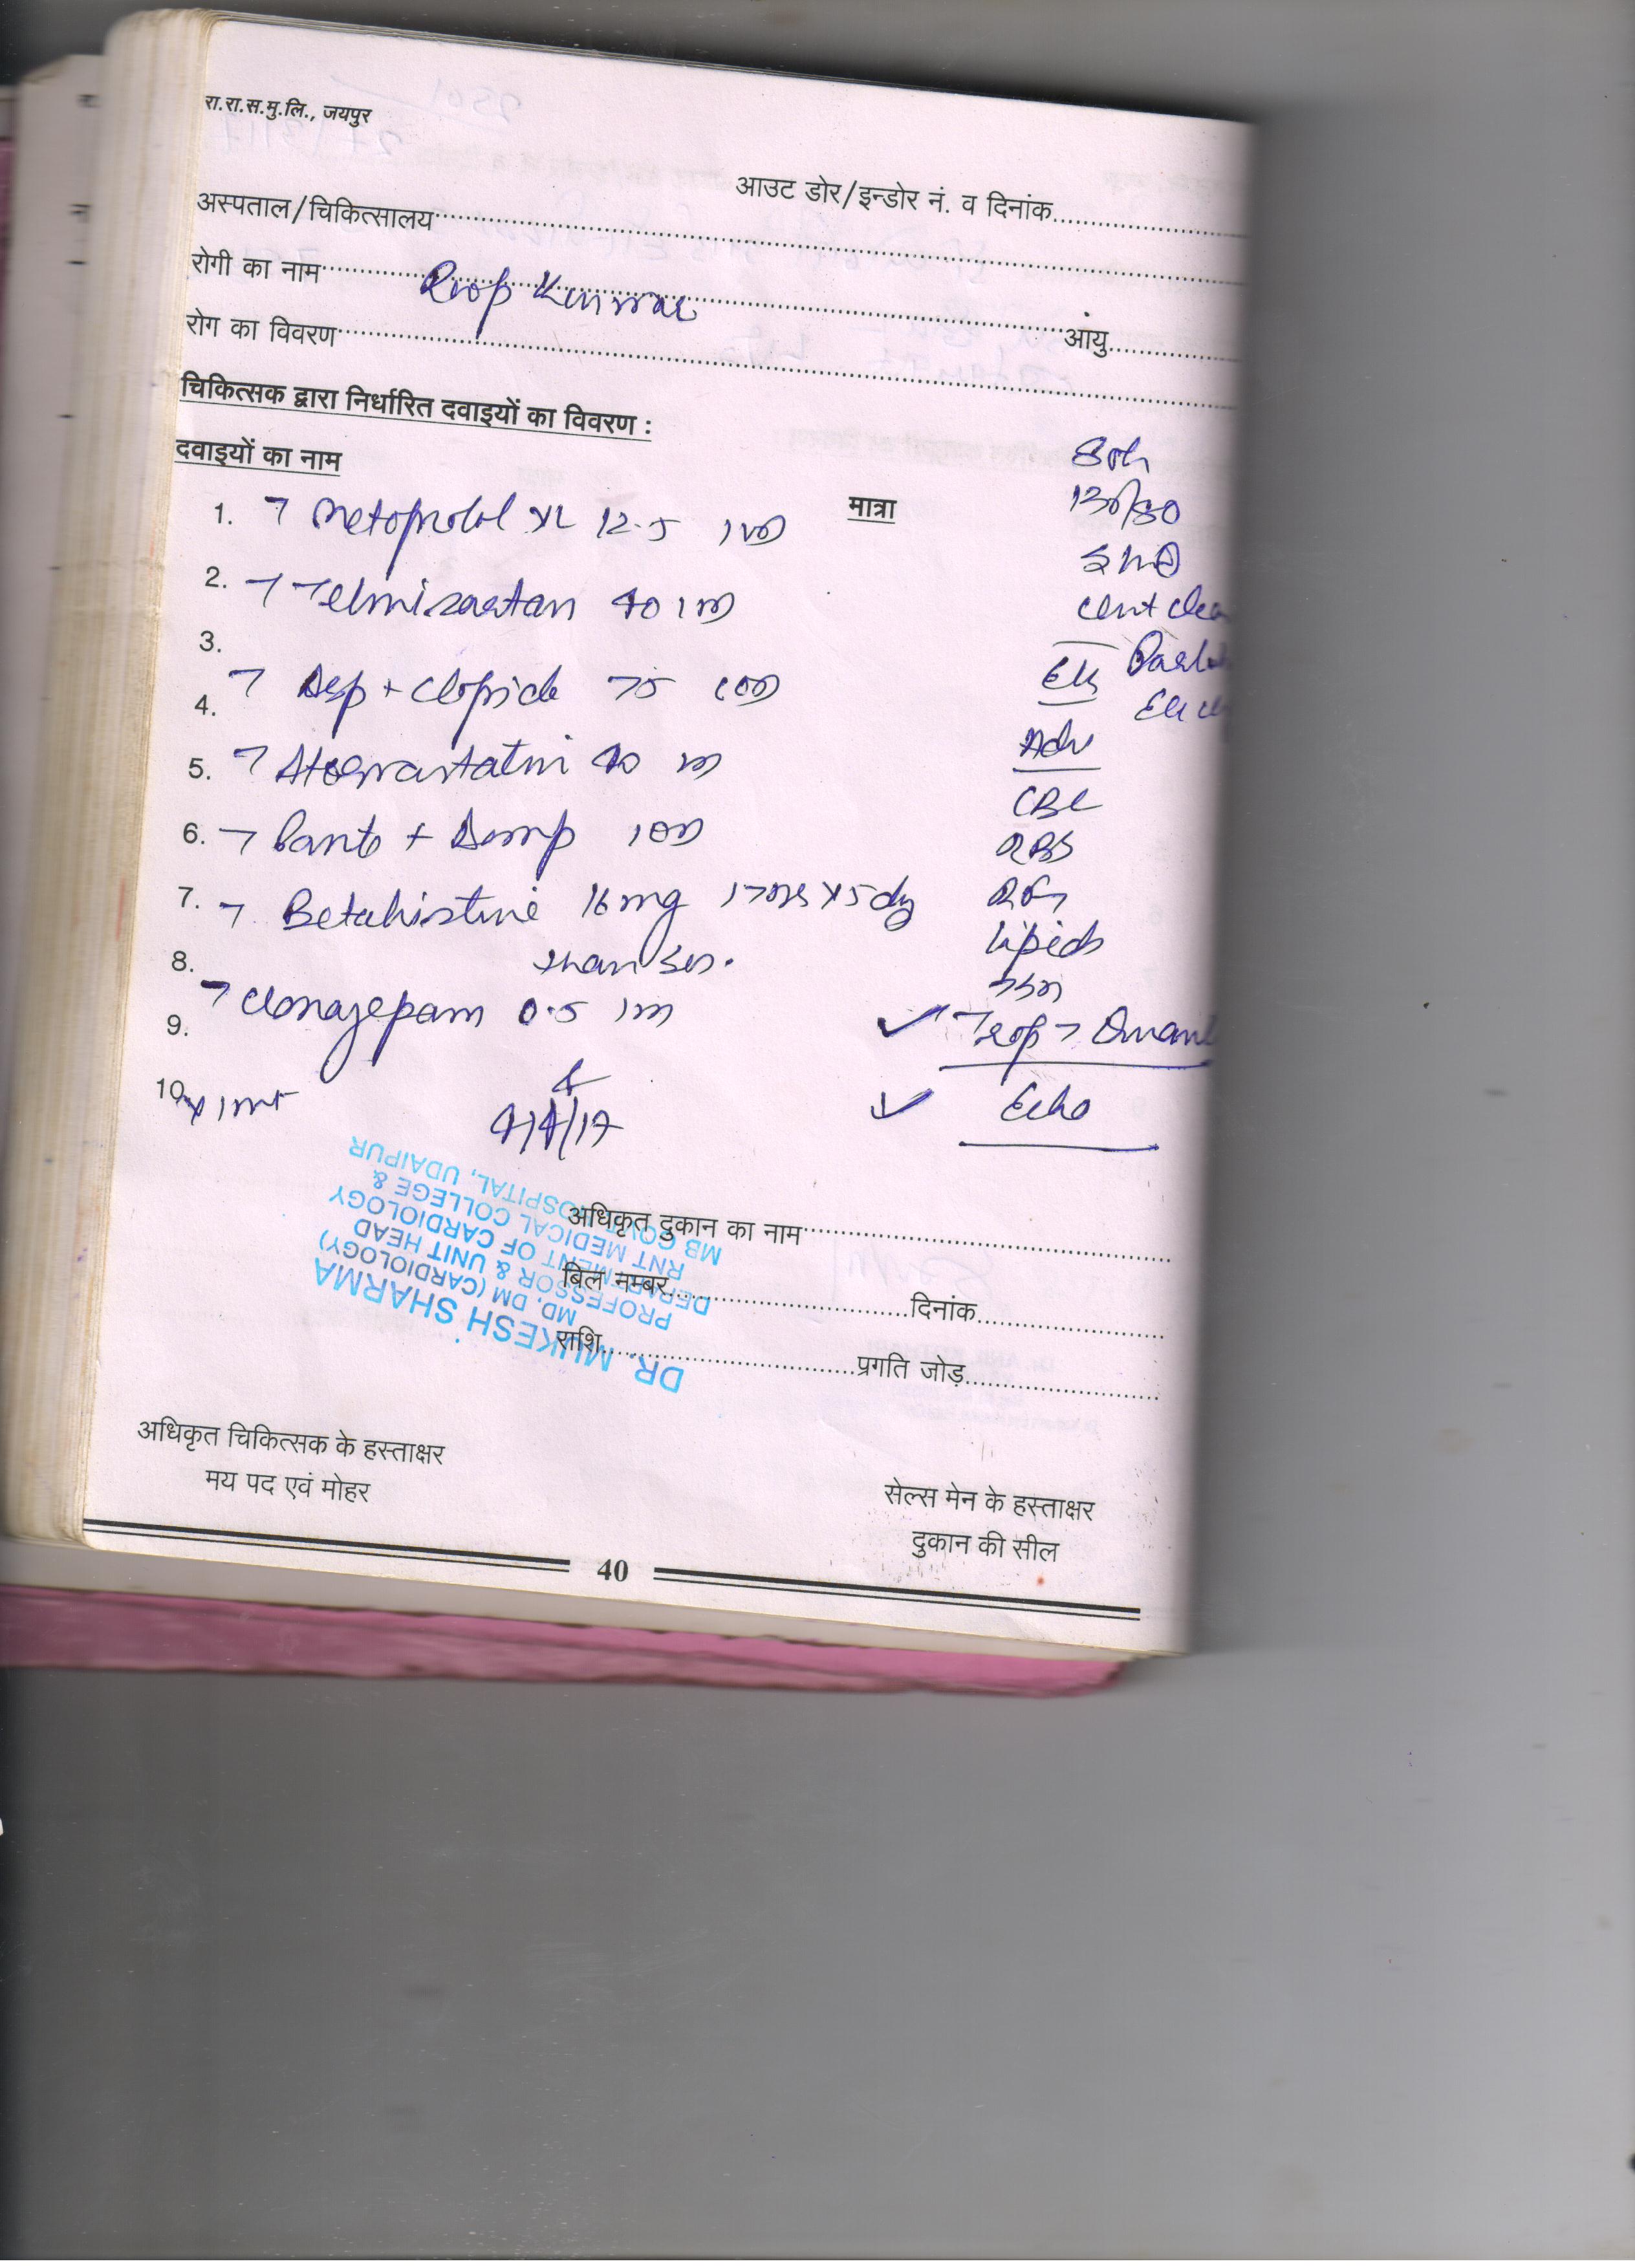 रा.रा.स.मु.लि., जयपुर
आउट डोर/इन्डोर नं. व दिनांक
अस्पताल/चिकित्सालय
रोगी का नाम Roop Kunwar
आयु
रोग का विवरण
चिकित्सक द्वारा निर्धारित दवाइयों का विवरण :
दवाइयों का नाम
मात्रा
130/80
1. Metoprolol XL 12.5
2. Telmisartan 40
3.
4. Asp + Clopid 75
5. Atorvastatin 40
6. Panto + Domp
7. Betahistine 16mg
8. than sos.
9. Clonazepam 0.5
10.
4/4/17
Adv
CBC
RBS
RFT
Lipids
Trop T Quant
Echo
DR. MUKESH SHARMA
MD, DM (CARDIOLOGY)
PROFESSOR & UNIT HEAD
DEPARTMENT OF CARDIOLOGY
RNT MEDICAL COLLEGE &
MB GOVT. HOSPITAL, UDAIPUR
अधिकृत दुकान का नाम
बिल नम्बर दिनांक
राशि प्रगति जोड़
अधिकृत चिकित्सक के हस्ताक्षर
मय पद एवं मोहर
सेल्स मेन के हस्ताक्षर
दुकान की सील
40